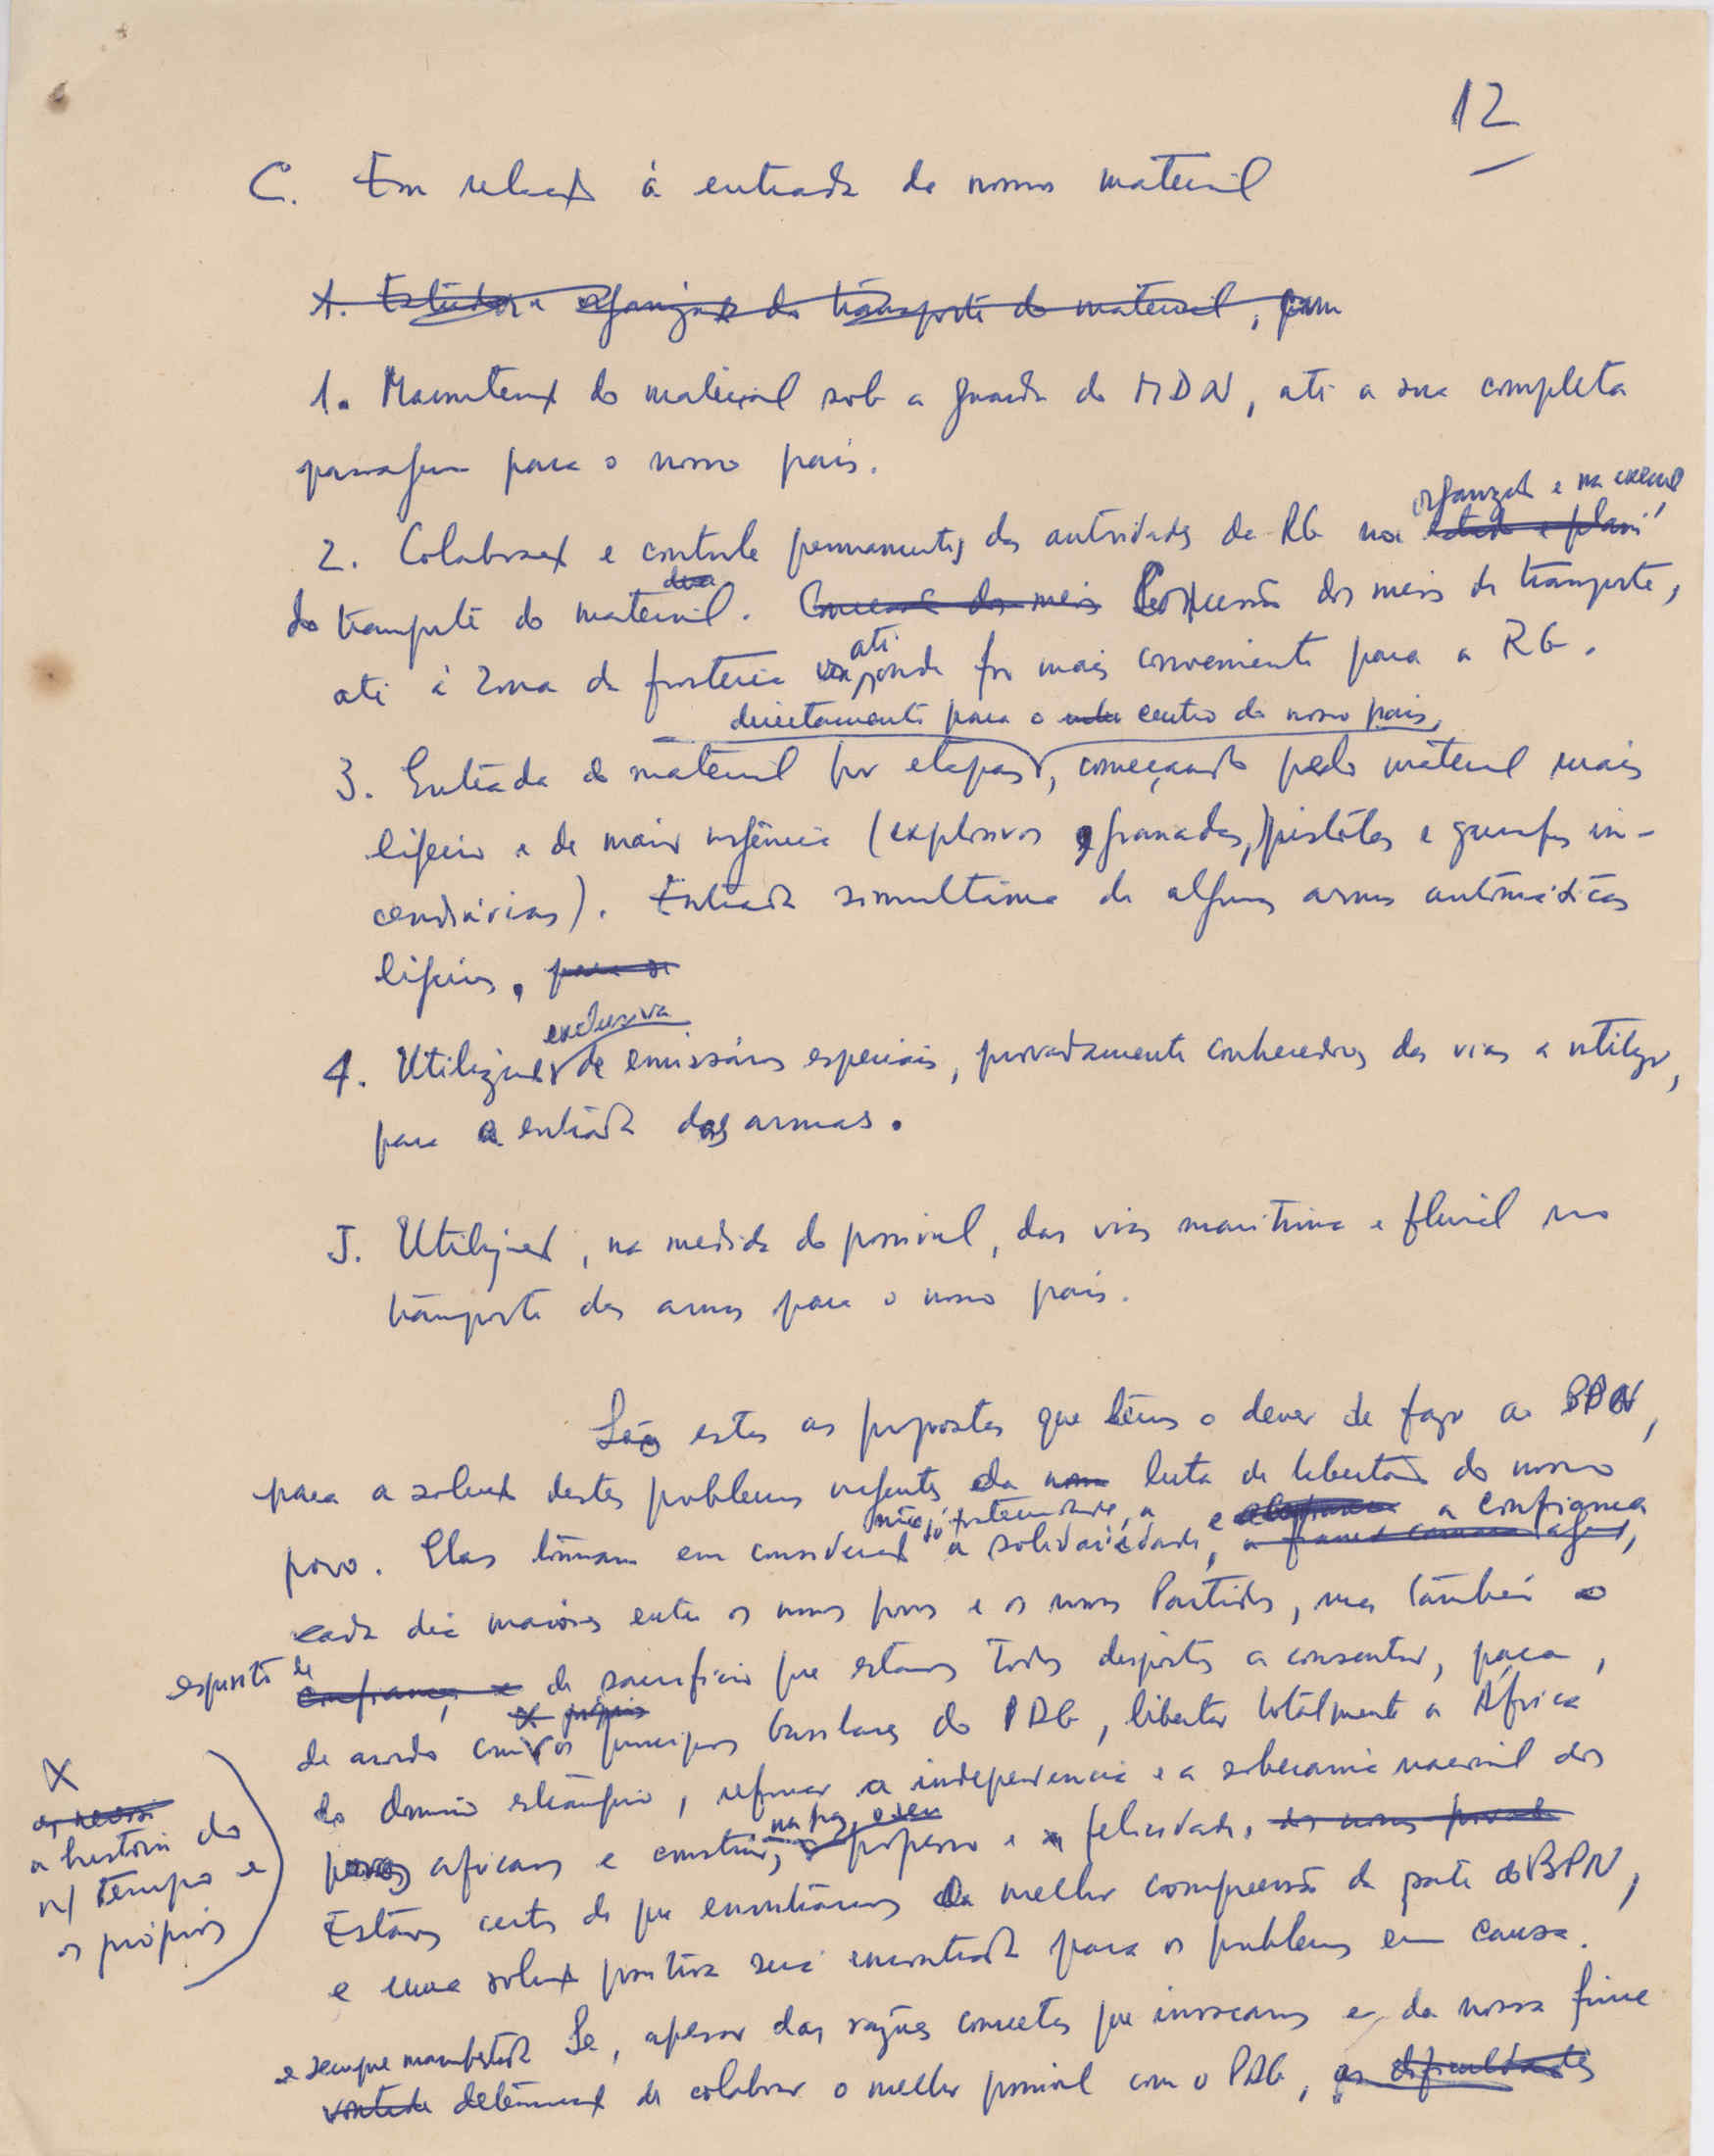 12
C. Em relação à entrada do nosso material
1. Estudar a organização do transporte do material, com
1. Manutenção do material sob a guarda do MDN, até a sua completa
passagem para o nosso país.
organização e na execução
2. Colaboração e controle permanentes das autoridades da RG na estudo e plani
do transporte do material. Concessão dos meios Concessão dos meios de transporte,
até
até à zona de fronteira ou onde for mais conveniente para a RG.
directamente para o centro do nosso país,
3. Entrada do material por etapas, começando pelo material mais
ligeiro e de maior urgência (explosivos, granadas, pistolas e garrafas in-
cendiárias). Entrada simultânea de algumas armas automáticas
ligeiras, para se
exclusiva
4. Utilização de emissários especiais, provadamente conhecedores das vias a utilizar,
para a entrada das armas.
5. Utilização, na medida do possível, das vias marítima e fluvial no
transporte das armas para o nosso país.
São estas as propostas que temos o dever de fazer ao BPN,
para a solução destes problemas urgentes da nossa luta de libertação do nosso
não só fraternidade, a e a confiança
povo. Elas tomam em consideração a solidariedade,
cada dia maiores entre os nossos povos e os nossos Partidos, mas também o
espírito de confiança, e de sacrifício que estamos todos dispostos a consentir, para,
os próprios
de acordo com os princípios basilares do PDG, libertar totalmente a África
do domínio estrangeiro, reforçar a independência e a soberania nacional dos
na paz, o seu
povos africanos e construir, progresso e felicidade. dos nossos povos
X
a história do
n/ tempo e
os próprios
Estamos certos de que encontraremos a melhor compreensão da parte do BPN,
e uma solução positiva será encontrada para os problemas em causa.
Se, apesar das razões concretas que invocamos e da nossa firme
e sempre manifestada
vontade determinação de colaborar o melhor possível com o PDG, as dificuldades